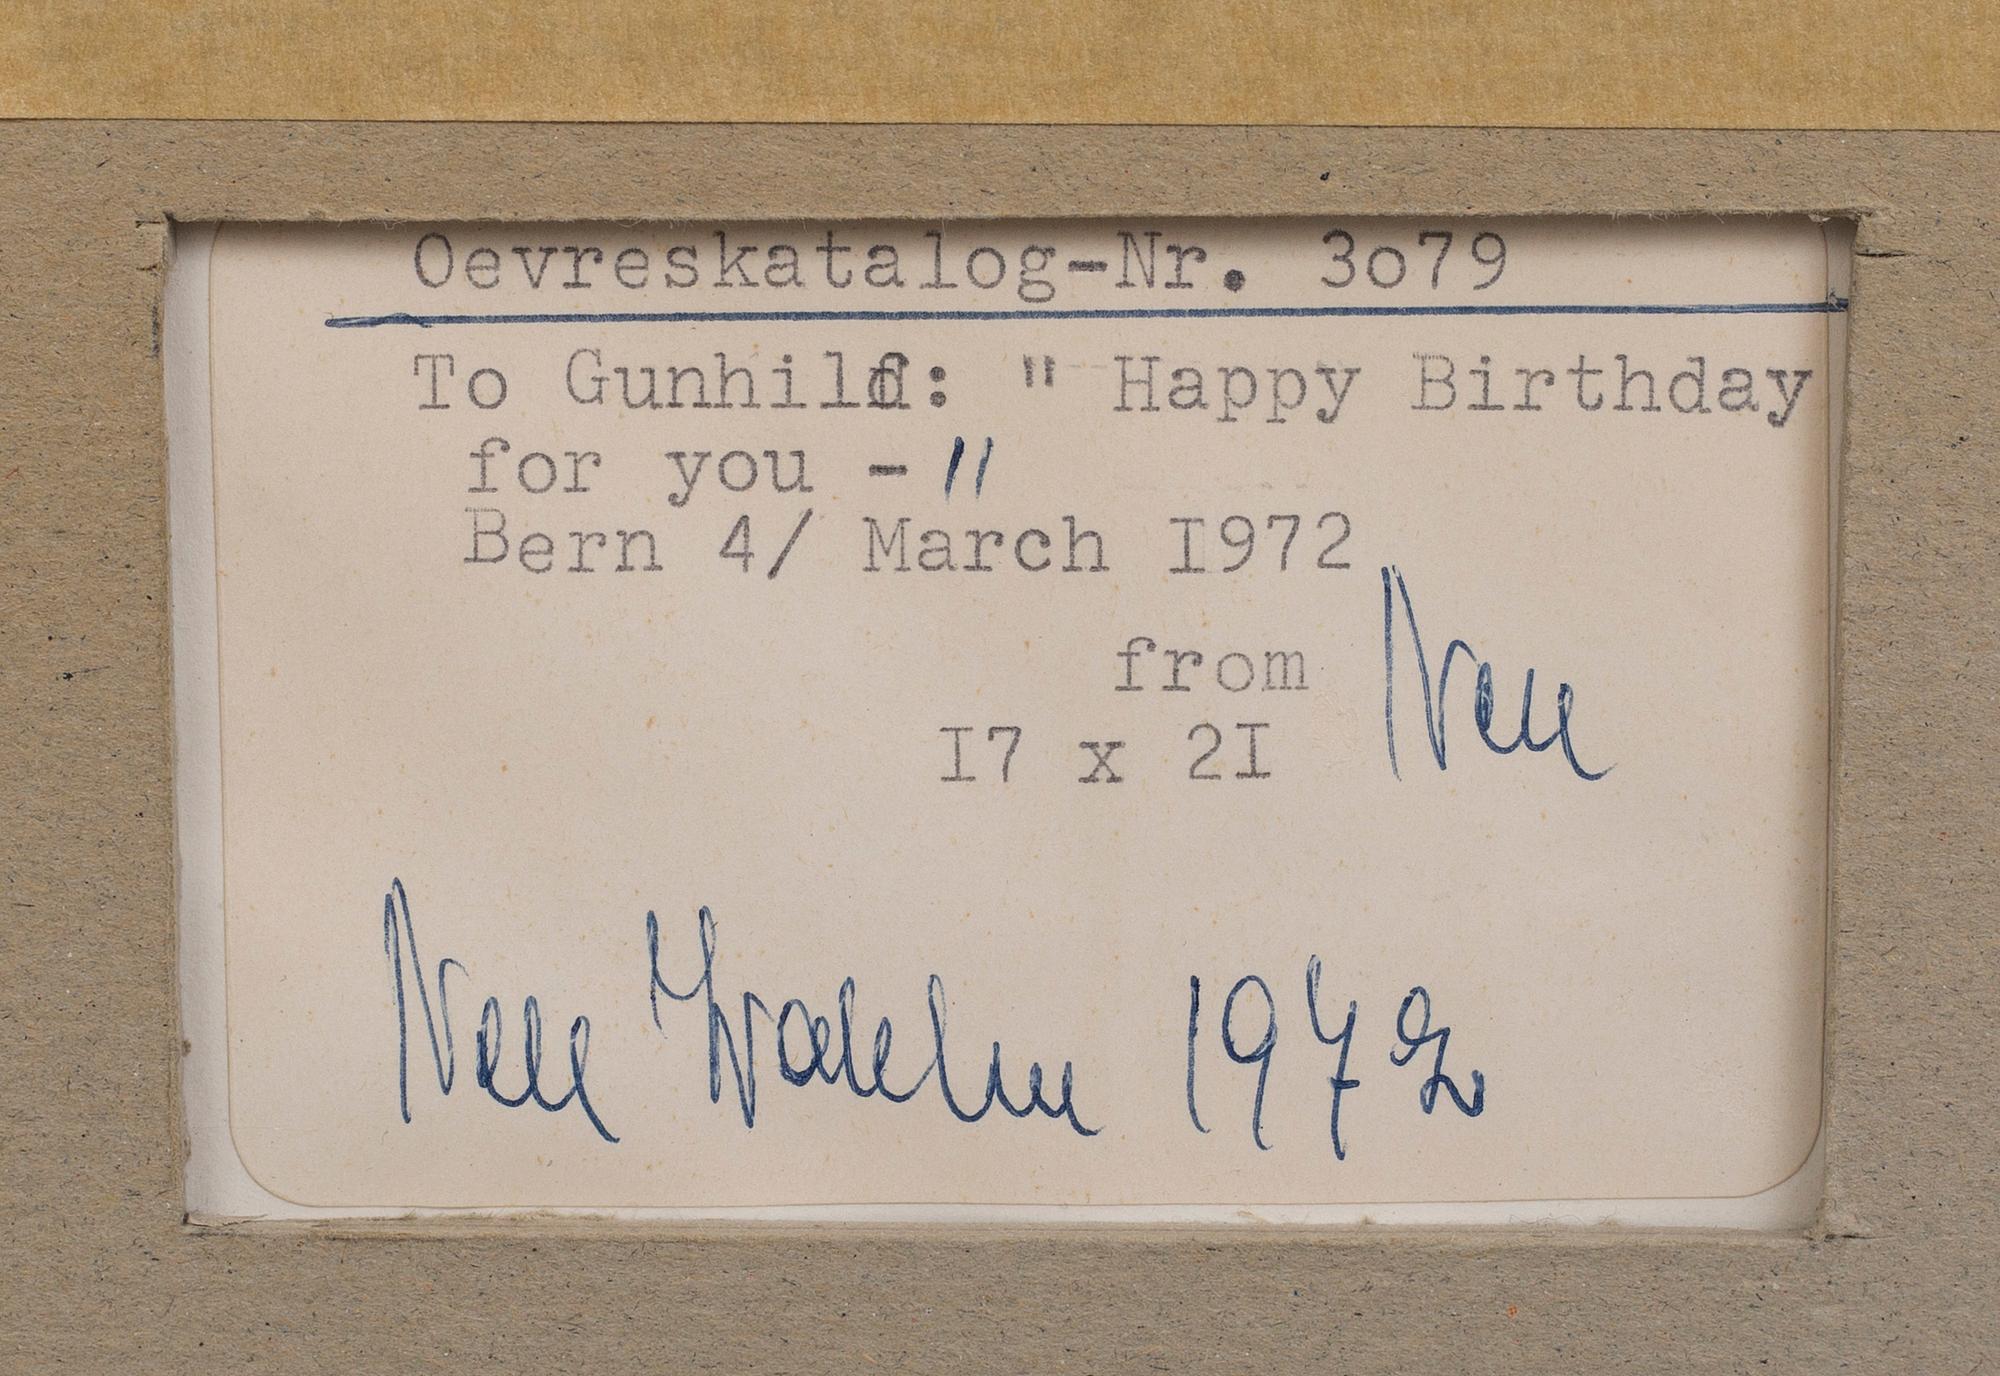 Oevreskatalog-Nr. 3o79
To Gunhild: " Happy Birthday
for you - "
Bern 4/ March I972
from Nell
I7 x 2I
Nell Walden 1972